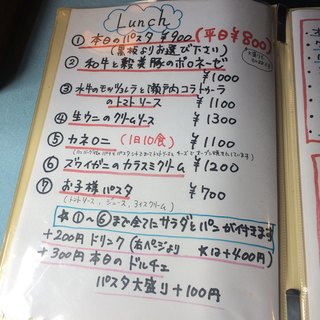 Lunch
① 本日のパスタ ¥900 (平日¥800)
(黒板よりお選び下さい)
② 和牛と穀美豚のボロネーゼ
¥1000
③ 水牛のモッツァレラと瀬戸内コラトゥーラ
のトマトソース ¥1100
④ 生ウニのクリームソース ¥1300
⑤ カネロニ (1日10食) ¥1100
⑥ ズワイガニのカラスミクリーム ¥1200
⑦ お子様パスタ ¥700
(トマトソース、ジュース、アイスクリーム)
☆①〜⑥まで全てにサラダとパンが付きます
+200円 ドリンク (右ページより ※は+400円)
+300円 本日のドルチェ
パスタ大盛り+100円